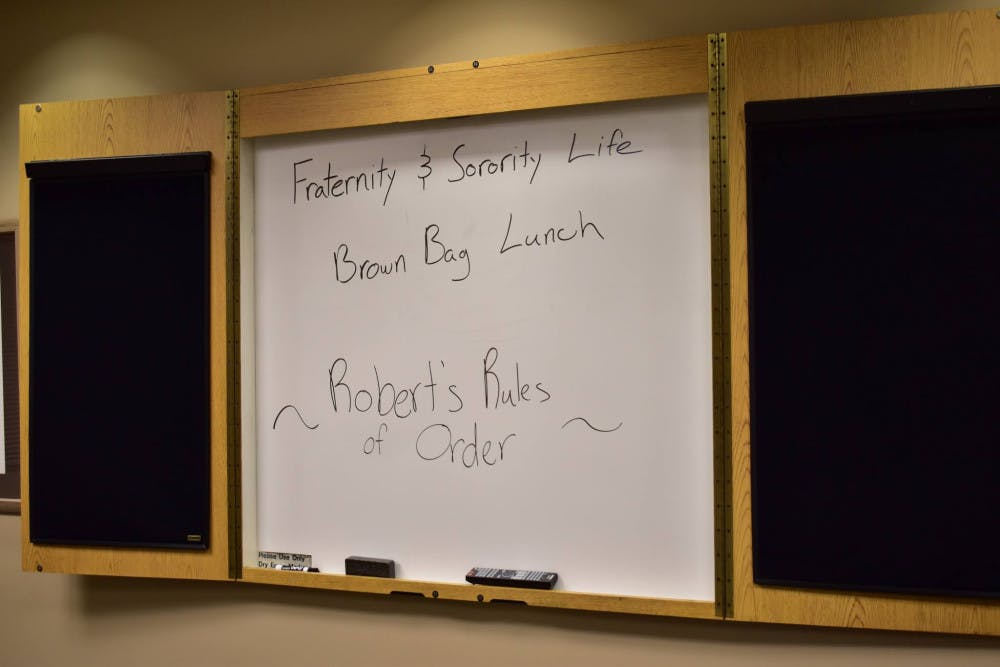 Fraternity & Sorority Life
Brown Bag Lunch
~ Robert's Rules ~
of Order
Please Use Only
Dry